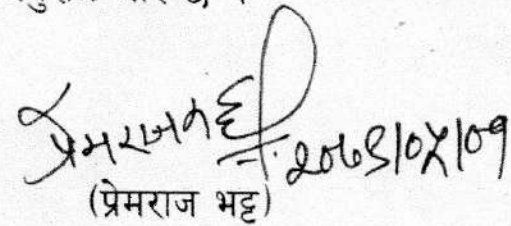 प्रेमराज भट्ट २०७९।०५।०१
(प्रेमराज भट्ट)